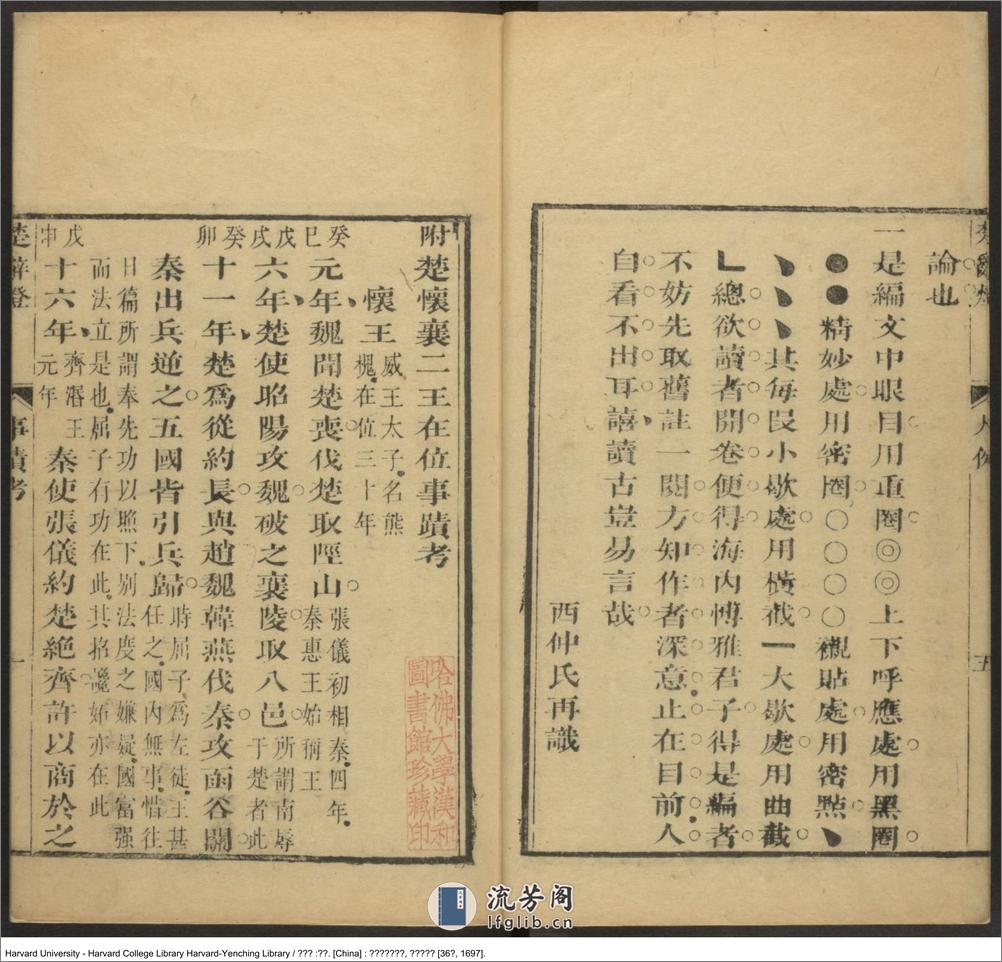 論也
一是編文中眼目用重圈◎◎上下呼應處用黑圈
●●精妙處用密圈○○○○襯貼處用密點﹅
﹅﹅﹅其每段小歇處用橫截一大歇處用曲截
┗總欲讀者開卷便得海內博雅君子得是編者
不妨先取舊註一閱方知作者深意止在目前人
自看不出耳嘻讀古豈易言哉
西仲氏再識
楚辭燈
凡例
五
附楚懷襄二王在位事蹟考
懷王 威王太子名熊槐在位三十年
癸巳 元年魏聞楚喪伐楚取陘山 張儀初相秦四年秦惠王始稱王
戊戌 六年楚使昭陽攻魏破之襄陵取八邑 所謂南辱于楚者此
癸卯 十一年楚爲從約長與趙魏韓燕伐秦攻函谷關
秦出兵逆之五國皆引兵歸 時屈子爲左徒王甚任之國內無事惜往
日篇所謂奉先功以照下別法度之嫌疑國富强而法立是也屈子有功在此其招讒妬亦在此
戊申 十六年 齊湣王元年 秦使張儀約楚絕齊許以商於之
楚辭燈
事蹟考
一
哈佛大學漢和
圖書館珍藏印
流芳阁
lfglib.cn
Harvard University - Harvard College Library Harvard-Yenching Library / ??? :??. [China] : ???????, ????? [36?, 1697].